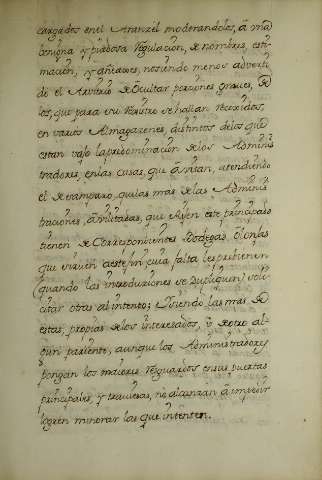 cargados en el Aranzel moderandolos, â una
benigna y piadosa Regulacion, de nombres, esti-
macion, y aneares, no siendo menos adverti-
do el Arvitrio de Ocultar porciones graues, de
los, que para su Rexistro se hallan recevidos
en varios Almagazenes, distintos de los que
estan vajo la predominacion de los Adminis
tradores, en las casas, que avitan, atendiendo
el desamparo, que las mas de las Adminis
traciones, que Rijen este principado
tienen de Correspondientes Bodegas, o lonjas
que sirvan a este fin, cuia falta les previenen
quando las introduziones se Dupliquen, soli-
citar otras al intento; Y siendo las mas de
estas, propias de los interesados, ù de otro al-
gun pariente, aunque los Administradores
pongan los maiores Resguardos en sus puertas
principales, y traviesas, no alcanzan â impedir
logren minorar las que intenten.